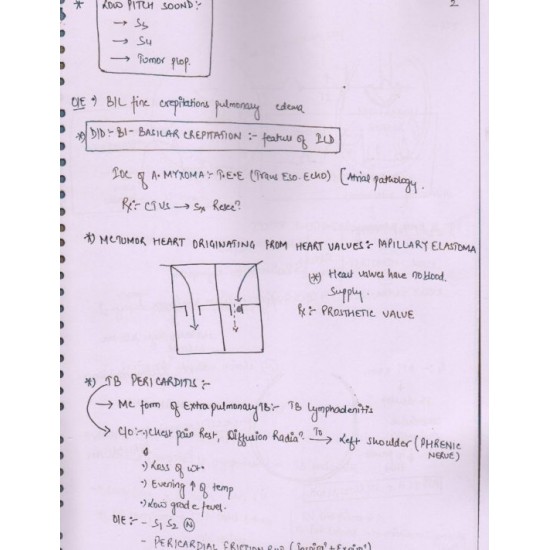 2
* LOW PITCH SOUND :-
→ S3
→ S4
→ Tumor plop.
O|E •) B/L fine crepitations pulmonary edema
*) D|D :- BI-BASILAR CREPITATION :- feature of ILD
IOC of A. MYXOMA :- T.E.E (Trans Eso. Echo) [Atrial pathology.
Rx :- CTVS → Sx Resec?
*) MC TUMOR HEART ORIGINATING FROM HEART VALVES :- PAPILLARY ELASTOMA
(*) Heart valves have no blood.
Supply.
Rx :- PROSTHETIC VALVE
*) TB PERICARDITIS :-
→ MC form of Extrapulmonary TB :- TB lymphadenitis
→ C/O :- •) Chest pain Rest, Diffusion Radia? To → left shoulder (PHRENIC
NERVE)
•) Loss of wt
•) Evening ↑ of temp
•) Low grade fever.
O|E :- - S1 S2 (N)
- PERICARDIAL FRICTION RUB